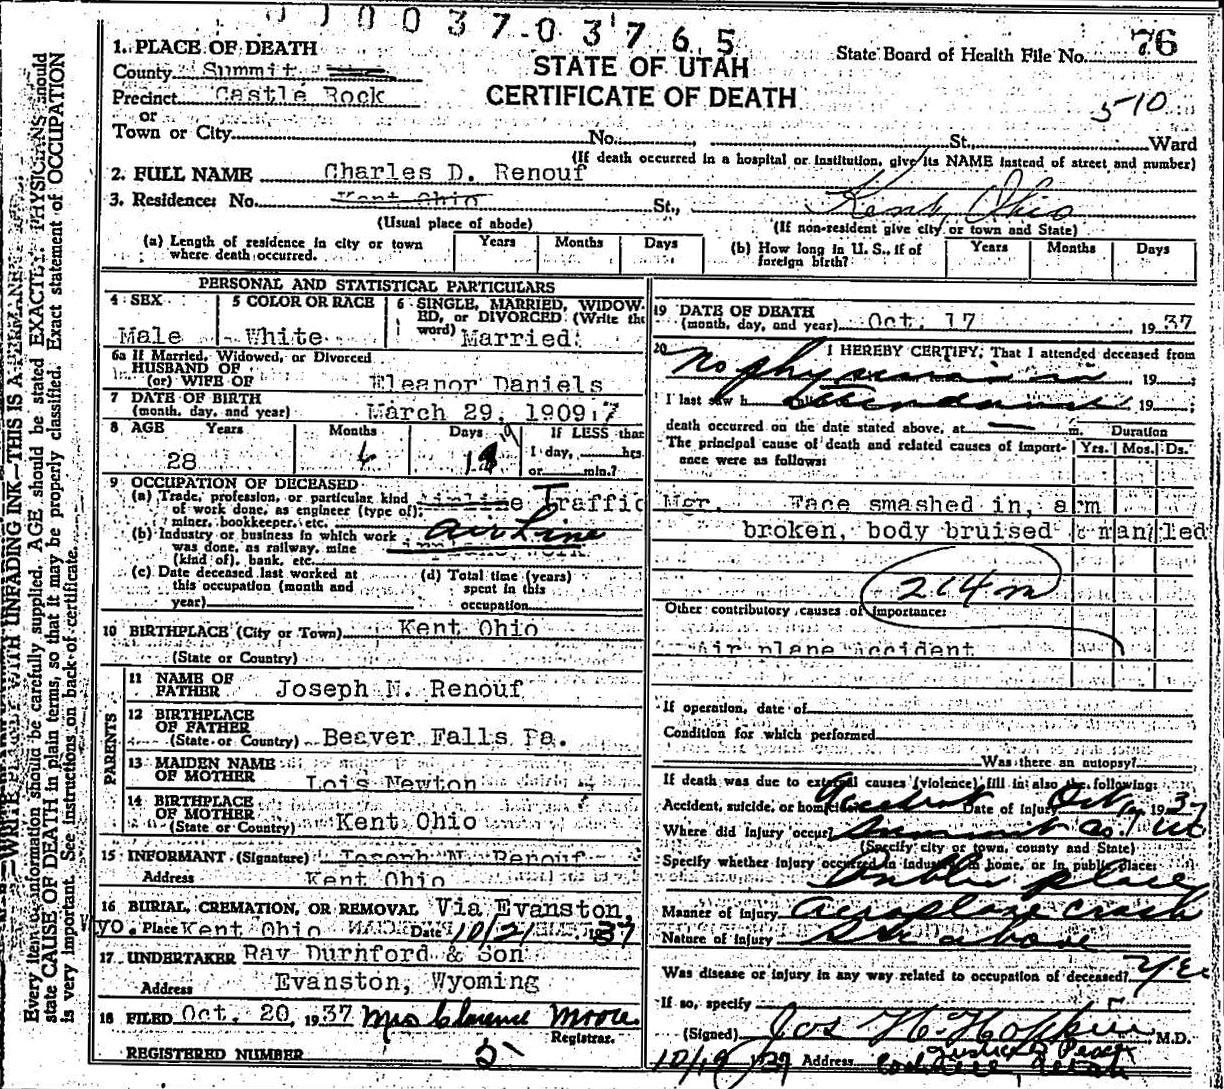 0037037 65
1. PLACE OF DEATH
County Summit
Precinct Castle Rock
or
Town or City No. St., Ward
STATE OF UTAH
CERTIFICATE OF DEATH
State Board of Health File No. 76
510
(If death occurred in a hospital or institution, give its NAME instead of street and number)
2. FULL NAME Charles D. Renouf
3. Residence: No. Kent Ohio St., Kent, Ohio
(Usual place of abode) (If non-resident give city or town and State)
(a) Length of residence in city or town where death occurred. Years Months Days
(b) How long in U. S., if of foreign birth? Years Months Days
PERSONAL AND STATISTICAL PARTICULARS
4 SEX Male
5 COLOR OR RACE White
6 SINGLE, MARRIED, WIDOWED, or DIVORCED (Write the word) Married
6a If Married, Widowed, or Divorced
HUSBAND OF
(or) WIFE OF Eleanor Daniels
7 DATE OF BIRTH
(month, day, and year) March 29, 1909
8 AGE Years Months Days If LESS than
28 1 day, hrs.
or min.?
9 OCCUPATION OF DECEASED
(a) Trade, profession, or particular kind of work done, as engineer (type of); miner, bookkeeper, etc. Airline Traffic Mgr.
(b) Industry or business in which work was done, as railway, mine (kind of), bank, etc. Air Line
(c) Date deceased last worked at this occupation (month and year)
(d) Total time (years) spent in this occupation
10 BIRTHPLACE (City or Town) Kent Ohio
(State or Country)
PARENTS
11 NAME OF FATHER Joseph N. Renouf
12 BIRTHPLACE OF FATHER
(State or Country) Beaver Falls Pa.
13 MAIDEN NAME OF MOTHER Lois Newton
14 BIRTHPLACE OF MOTHER
(State or Country) Kent Ohio
15 INFORMANT (Signature) Joseph N. Renouf
Address Kent Ohio
16 BURIAL, CREMATION, OR REMOVAL Via Evanston,
yo. Place Kent Ohio Date 10/21 1937
17 UNDERTAKER Ray Durnford & Son
Address Evanston, Wyoming
18 FILED Oct. 20, 1937 Mrs Clarence Moore
Registrar.
REGISTERED NUMBER 5
19 DATE OF DEATH
(month, day, and year) Oct. 17, 1937
20 I HEREBY CERTIFY, That I attended deceased from
No physician in, 19 ;
I last saw h attendance, 19 ;
death occurred on the date stated above, at m. Duration
The principal cause of death and related causes of importance were as follows: Yrs. Mos. Ds.
Face smashed in, arm
broken, body bruised & mangled
214m
Other contributory causes of importance:
Air plane accident
If operation, date of
Condition for which performed
Was there an autopsy?
If death was due to external causes (violence) fill in also the following:
Accident, suicide, or homicide Accident Date of injury Oct 17 1937
Where did injury occur? Summit Co. Ut
(Specify city or town, county and State)
Specify whether injury occurred in industry, in home, or in public place:
Public place
Manner of injury Aeroplane crash
Nature of injury See above
Was disease or injury in any way related to occupation of deceased? Yes
If so, specify
(Signed) Jos H. Hopkin, M.D.
Justice of Peace
10/19 1937 Address Utah
Every item of information should be carefully supplied. AGE should be stated EXACTLY. PHYSICIANS should
state CAUSE OF DEATH in plain terms, so that it may be properly classified. Exact statement of OCCUPATION
is very important. See instructions on back of certificate.
WRITE PLAINLY WITH UNFADING INK—THIS IS A PERMANENT